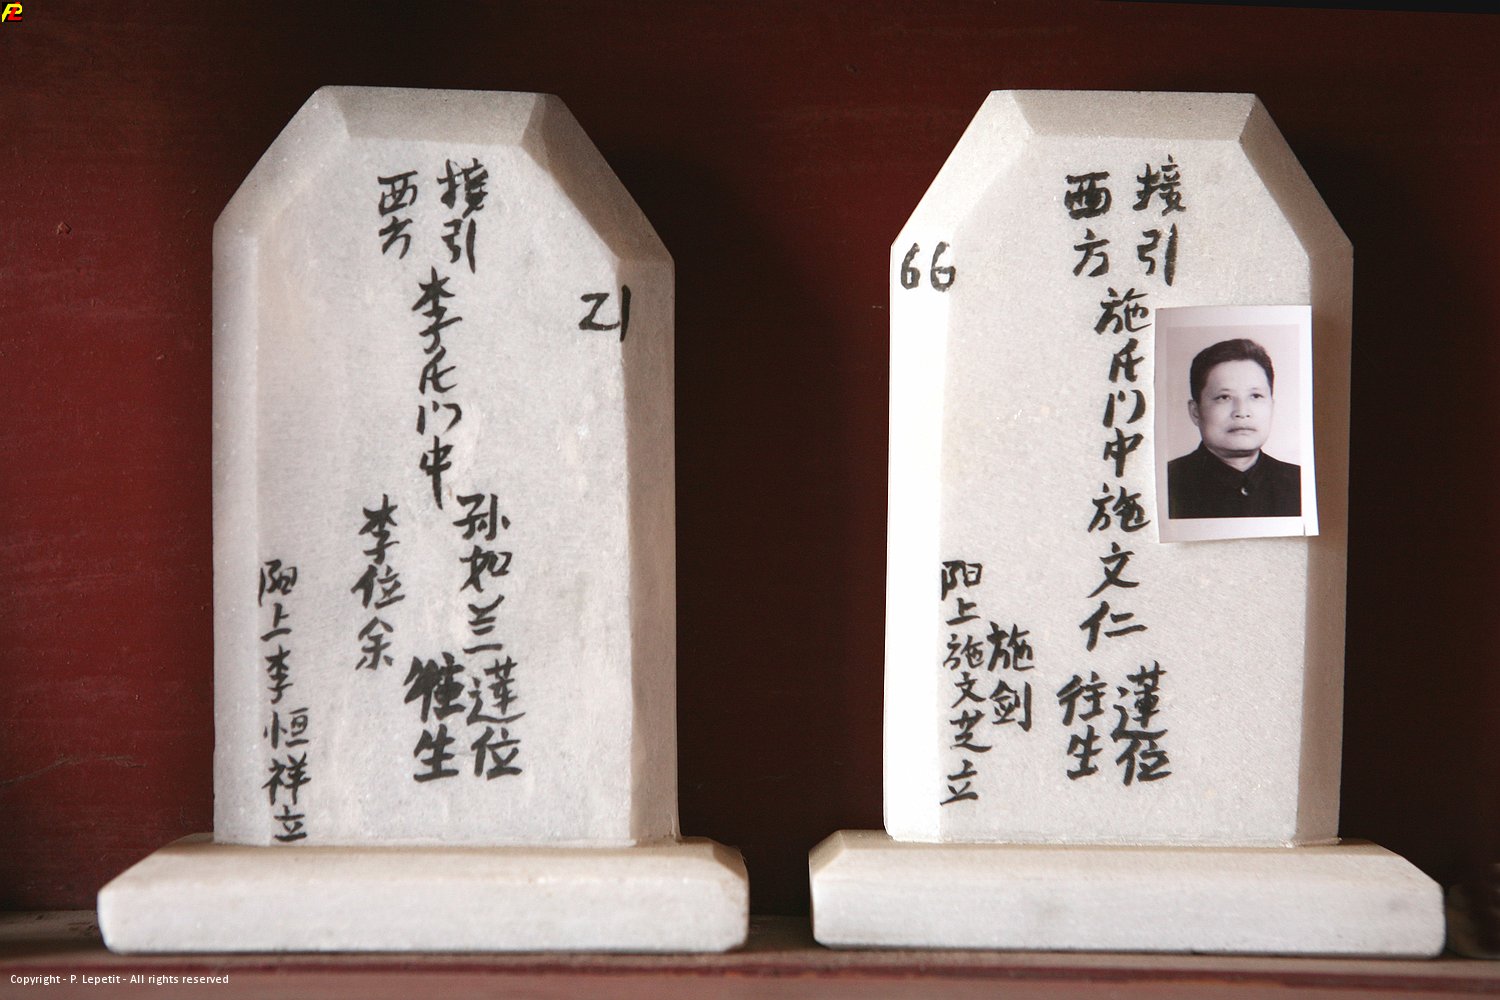 接引
西方
李氏门中
孙如兰
李位余
莲位
往生
阳上李恒祥立
21
接引
西方
施氏门中施文仁
莲位
往生
施剑
阳上施文芝立
66
Copyright - P. Lepetit - All rights reserved